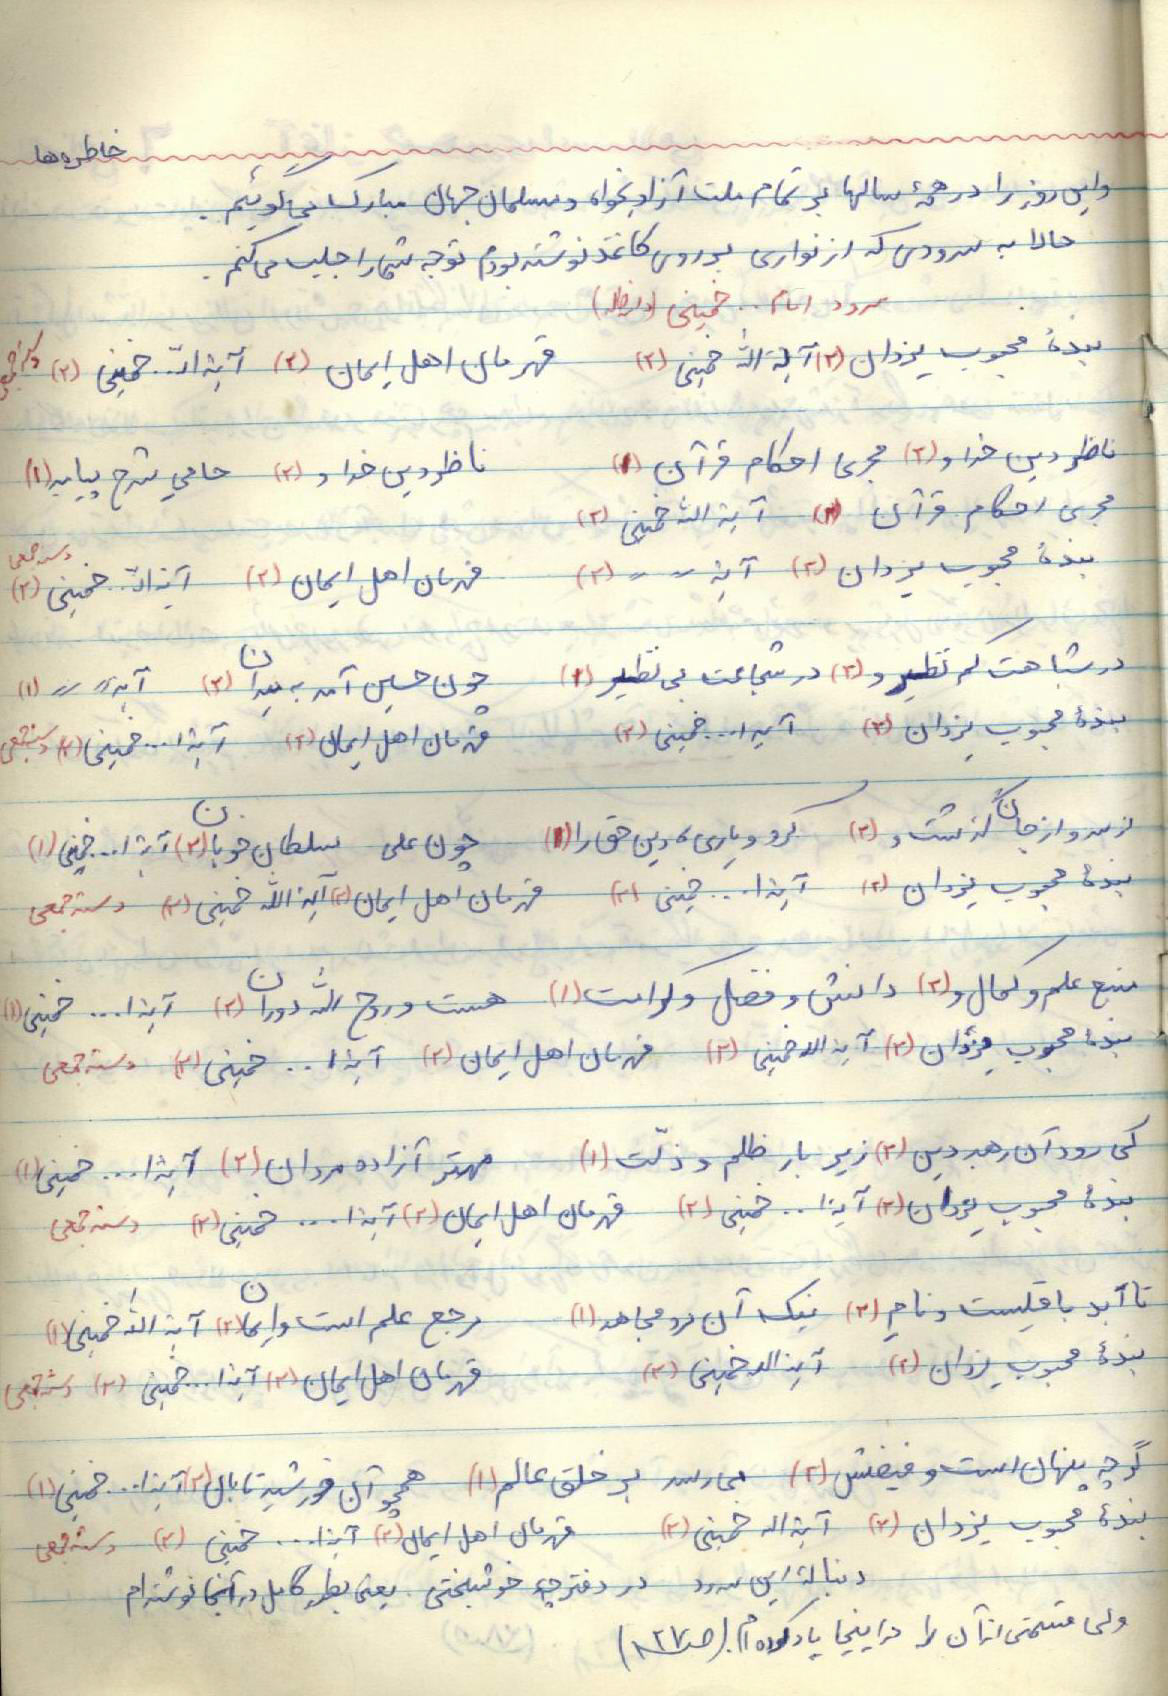 خاطره‌ها
واین روز را در همهٔ سالها بر تمام ملت آزادیخواه و مسلمان جهان مبارک می‌گوئیم.
حالا به سرودی که از نواری بر روی کاغذ نوشته بودم توجه شما را جلب می‌کنم.
سرود امام... خمینی
بندهٔ محبوب یزدان (۲) آیة الله خمینی (۲) قهرمان اهل ایمان (۲) آیة اللّه.. خمینی (۲)
ناظر دین خدا و (۲) مجری احکام قرآن (۱) ناظر دین خدا و (۲) حامی شرح پیامبر (۱)
مجری احکام قرآن (۲) آیة الله خمینی (۲)
بندهٔ محبوب یزدان (۲) آیة 〃 〃 (۲) قهرمان اهل ایمان (۲) آیة اللّه.. خمینی (۲) دسته جمعی
در شباهت کم نظیر و (۲) در شجاعت بی نظیر (۱) چون حسین آمد به میدان (۲) آیة 〃 〃 (۱)
بندهٔ محبوب یزدان (۲) آیة ا... خمینی (۲) قهرمان اهل ایمان (۲) آیة ا... خمینی (۲) دسته جمعی
از سر و از جان گذشت و (۲) کرد و یاری دین حق را (۱) چون علی سلطان خوبان (۲) آیة ا... خمینی (۱)
بندهٔ محبوب یزدان (۲) آیة ا... خمینی (۲) قهرمان اهل ایمان (۲) آیة اللّه خمینی (۲) دسته جمعی
منبع علم و کمال و (۲) دانش و فضل و کرامت (۱) هست و روح اللّه دوران (۲) آیة ا... خمینی (۱)
بندهٔ محبوب یزدان (۲) آیة الله خمینی (۲) قهرمان اهل ایمان (۲) آیة ا... خمینی (۲) دسته جمعی
کی رود آن رهبر دین (۲) زیر بار ظلم و ذلّت (۱) مهتر آزاده مردان (۲) آیة ا... خمینی (۱)
بندهٔ محبوب یزدان (۲) آیة ا... خمینی (۲) قهرمان اهل ایمان (۲) آیة ا.... خمینی (۲) دسته جمعی
تا ابد باقیست و نام (۲) نیک آن مرد مجاهد (۱) مرجع علم است و ایمان (۲) آیة اللّه خمینی (۱)
بندهٔ محبوب یزدان (۲) آیة الله خمینی (۲) قهرمان اهل ایمان (۲) آیة ا... خمینی (۲) دسته جمعی
گرچه پنهان است و فیضش (۲) می رسد بر خلق عالم (۱) همچو آن خورشید تابان (۲) آیة ا... خمینی (۱)
بندهٔ محبوب یزدان (۲) آیة الله خمینی (۲) قهرمان اهل ایمان (۲) آیة ا.... خمینی (۲) دسته جمعی
دنبالهٔ این سرود در دفترچه خوشبختی یعنی بطور کامل در آنجا نوشته‌ام
ولی قسمتی از آن را در اینجا یاد کرده‌ام.